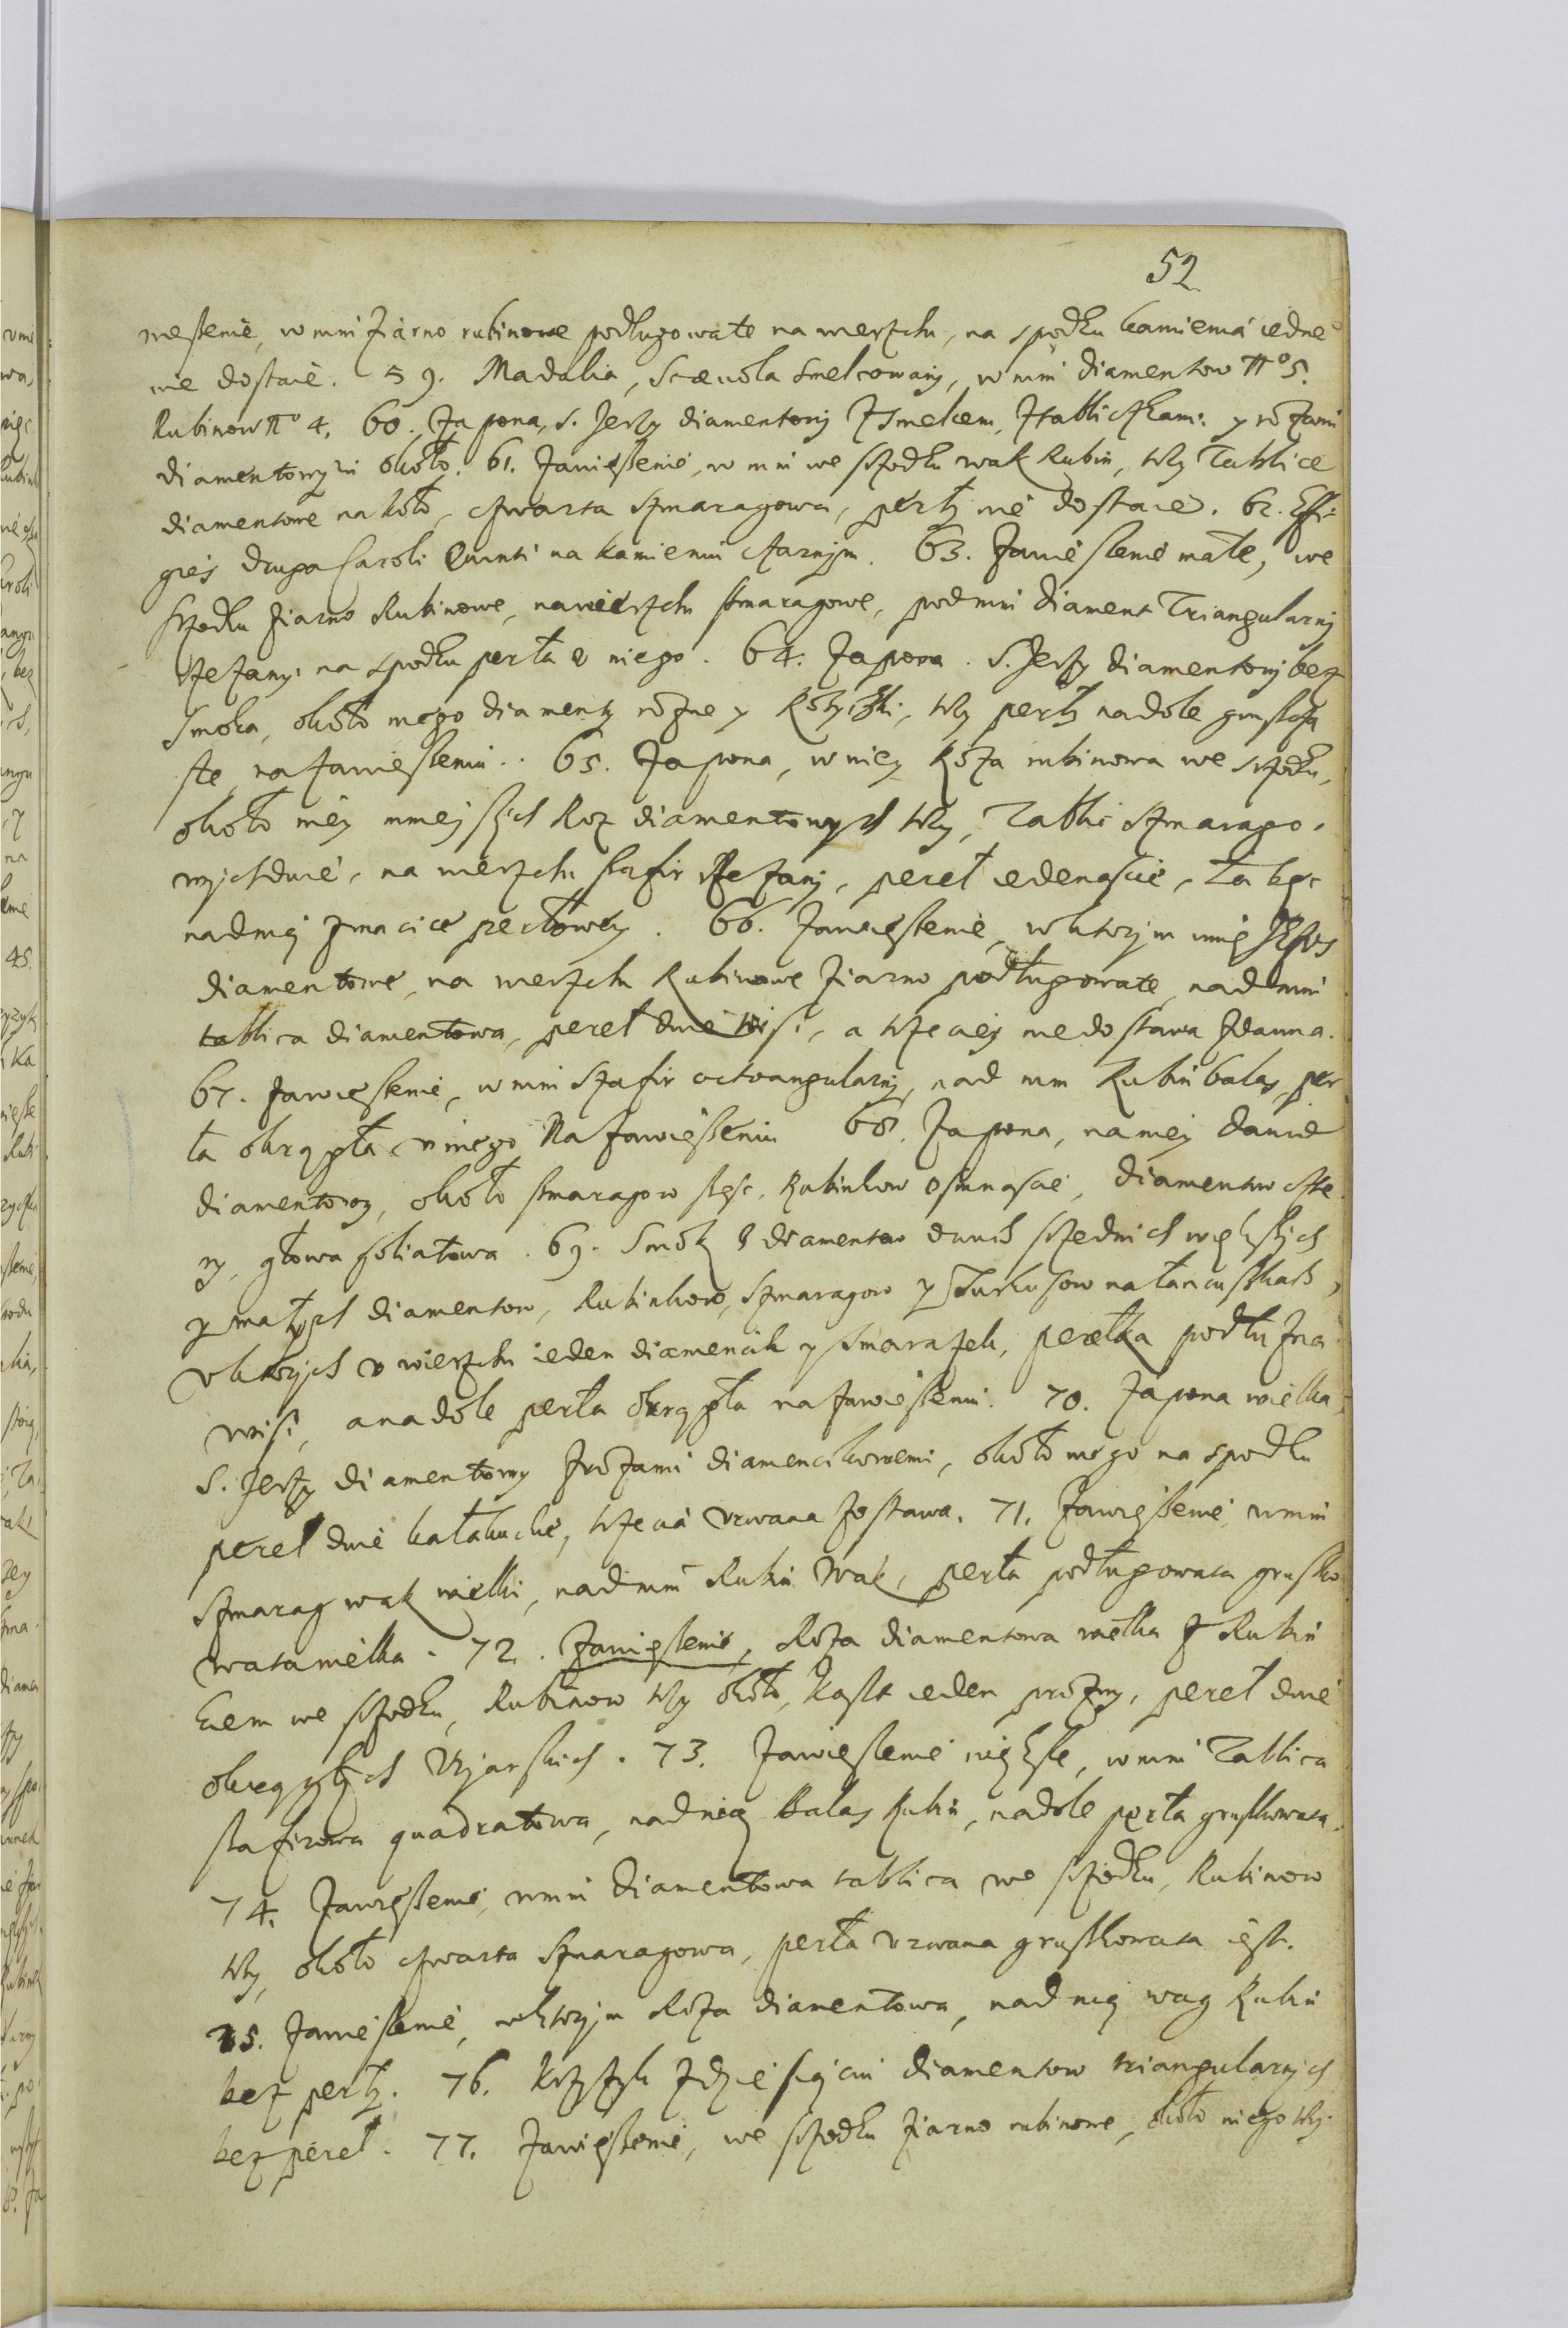 52
wieszenie, w nim ziarno rubinowe podługowate na wierzchu, na spodku kamienia iedne°
nie dostaie. 59. Madalia, Scæuola smelcowany, w nim diamentow no 5.
Rubinow no 4. 60. Zapona, S. Jerzy diamentowy z smokiem, z tabliczkami y rożami
diamentowymi około. 61. Zawieszenie, w nim we szrodku wak Rubin, trzy Tablice
diamentowe na koło, czwarta szmaragowa, perły nie dostaie. 62. Effi-
gies druga Caroli Quinti na kamieniu czarnym. 63. Zawieszenie małe, we
szrodku ziarno Rubinowe, na wierzchu szmaragowe, pod nim diament Triangularny
rzezany, na spodku perła v niego. 64. Zapona. S. Jerzy diamentowy bez
smoka, około niego diamenty rożne y Rożyczki, trzy perły na dole gruszczy
ste na zawieszeniu. 65. Zapona, w niey Roża rubinowa we szrodku,
około niey mnieyszych Roz diamentowych trzy, Tablic szmarago-
wych dwie, na wierzchu szafir rzezany, pereł iedenascie,
nad nią z macice perłowey. 66. Zawieszenie, w ktorym imię Jezus
diamentowe, na wierzchu Rubinowe ziarno podługowate, nad nim
tablica diamentowa, pereł dwie wisi, a trzeciey nie dostawa zdawna.
67. Zawieszenie, w nim szafir octoangularny, nad nim Rubin balas, per
ła okrągła v niego na zawieszeniu 68. Zapona, na niey Dawid
diamentowy, około szmaragow szesc, Rubinkow osmnascie, diamentow czte
ry, głowa Goliatowa. 69. Smok z diamentow dwuch srzednich większych
y małych diamentow, Rubinkow, szmaragow y Turkusow na łancuszkach,
v ktorych v wierzchu ieden diamencik y smarazek, perełka podłużna
wisi, a na dole perła okrągła na zawieszeniu. 70. Zapona wielka,
S. Jerzy diamentowy z rożami diamencikowemi, około niego na spodku
pereł dwie kałakuckie, trzecia vrwana zostawa. 71. Zawieszenie, w nim
szmarag wak wielki, nad nim Rubin wak, perła podługowata gruszko
wata wielka. 72. Zawieszenie, Roża diamentowa wielka z Rubin
kiem we szrodku, Rubinow trzy około, kaszt ieden prożny, pereł dwie
okrągłych Vrjanskich. 73. Zawieszenie więksże, w nim Tablica
szafirowa quadratowa, nad nią Balas Rubin, na dole perła gruszkowata.
74. Zawieszenie, w nim diamentowa tablica we szrodku, Rubinow
trzy, około czwarta szmaragowa, perła vrwana gruszkowata iest.
75. Zawieszenie, w ktorym Roża diamentowa, nad nią wag Rubin
bez perły. 76. Krzyżyk z dziesiąciu diamentow triangularnych
bez pereł. 77. Zawieszenie, we szrodku ziarno rubinowe, około niego trzy